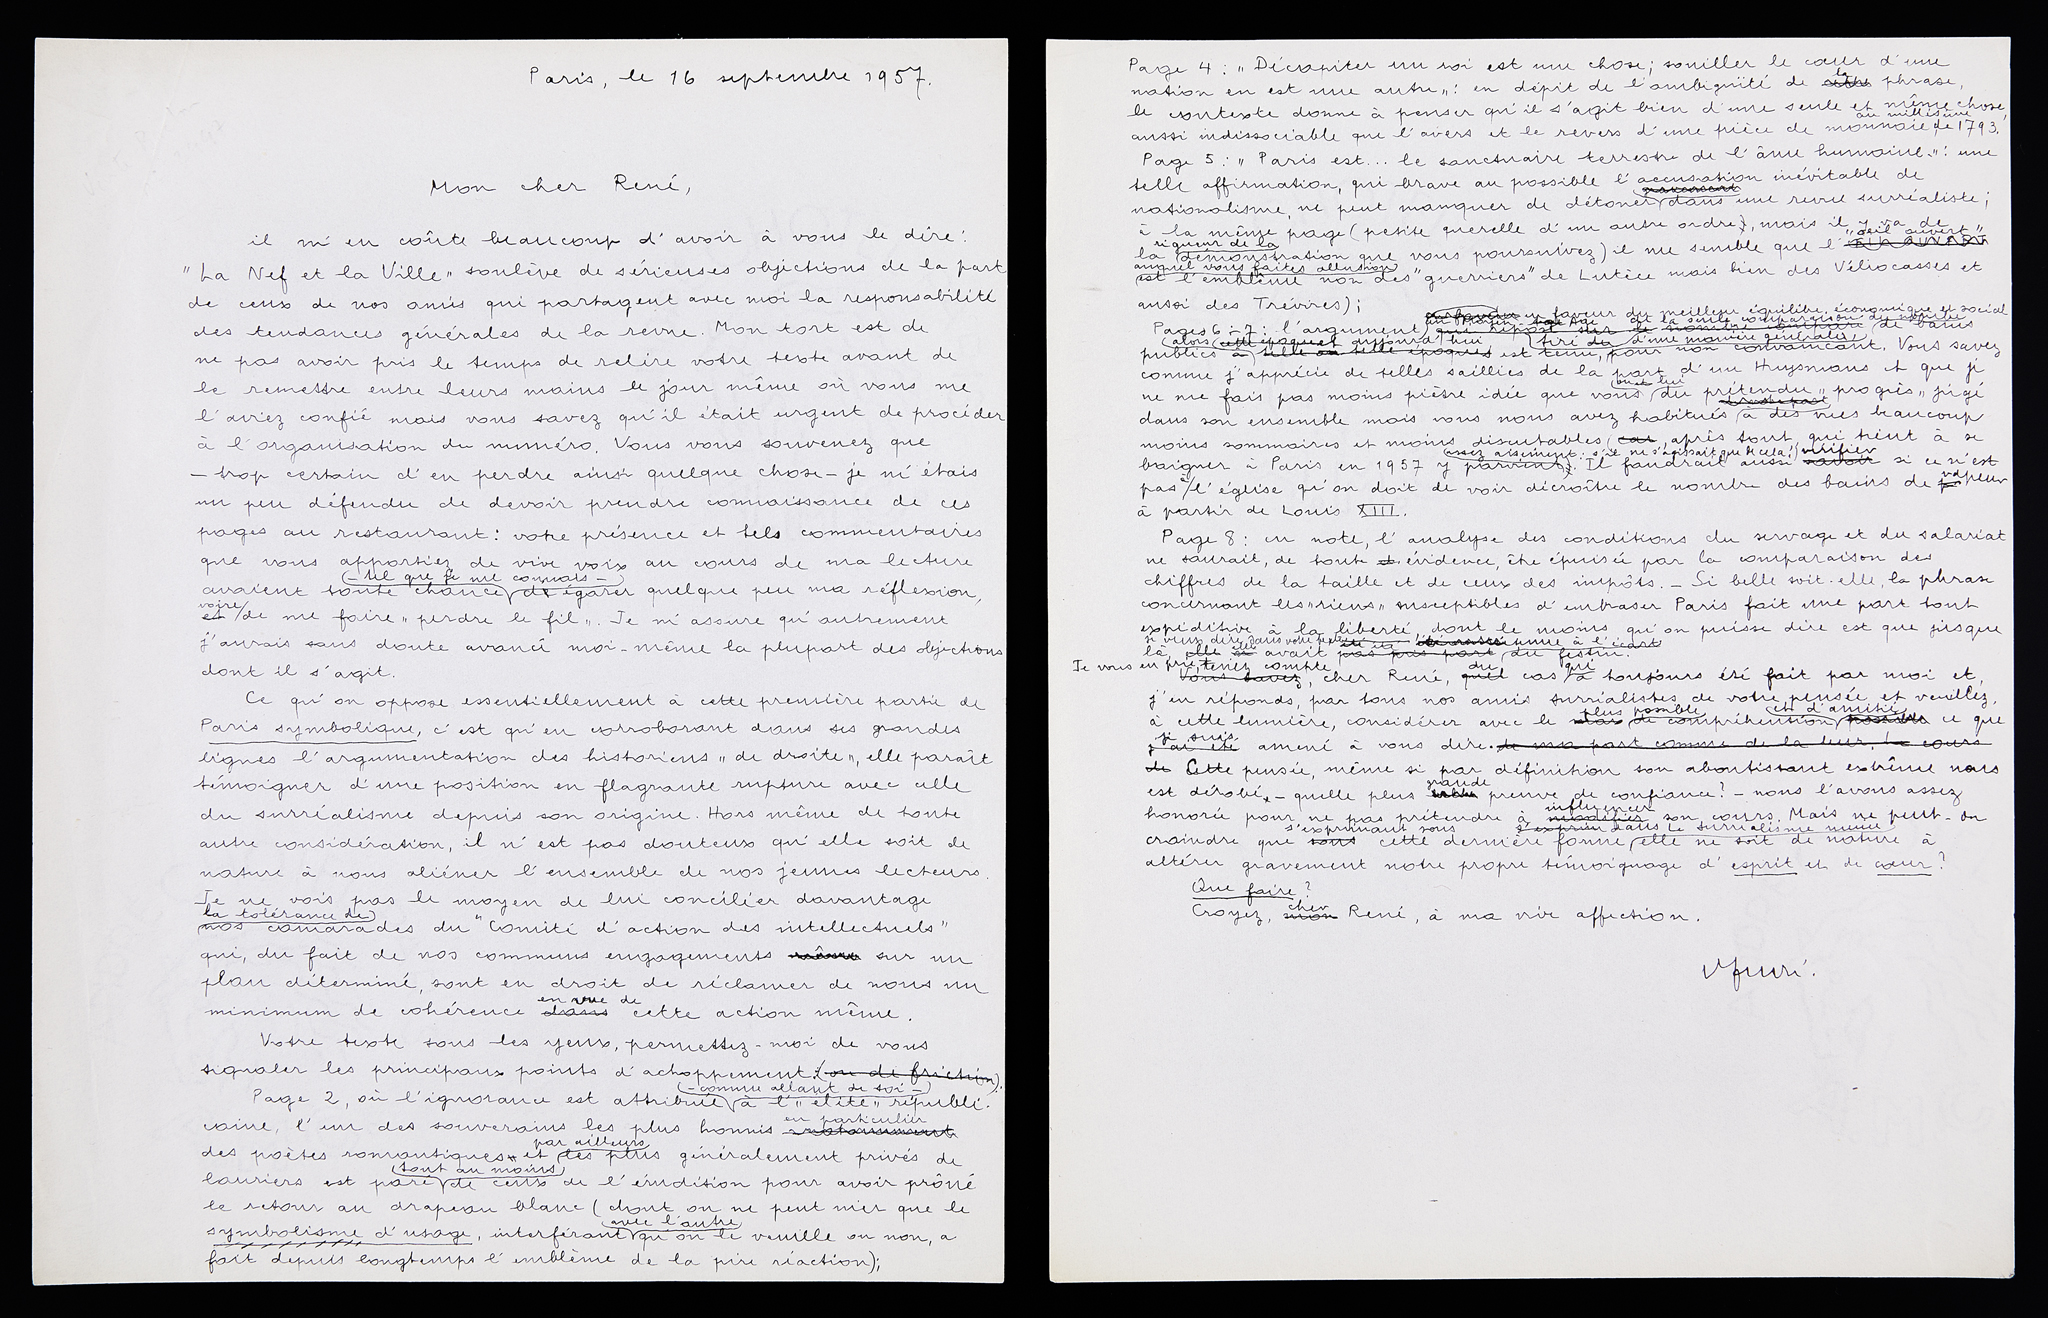 Paris, le 16 septembre 1957.
Mon cher René,
il m'en coûte beaucoup d'avoir à vous le dire :
"La Nef et la Ville" soulève de sérieuses objections de la part
de ceux de nos amis qui partagent avec moi la responsabilité
des tendances générales de la revue. Mon tort est de
ne pas avoir pris le temps de relire votre texte avant de
le remettre entre leurs mains le jour même où vous me
l'aviez confié mais vous savez qu'il était urgent de procéder
à l'organisation du numéro. Vous vous souvenez que
— trop certain d'en perdre ainsi quelque chose — je m'étais
un peu défendu de devoir prendre connaissance de ces
pages au restaurant : votre présence et tels commentaires
que vous apportiez de vive voix au cours de ma lecture
— tel que je me connais —
avaient toute chance d'égarer quelque peu ma réflexion,
voire
et de me faire "perdre le fil". Je m'assure qu'autrement
j'aurais sans doute avancé moi-même la plupart des objections
dont il s'agit.
Ce qu'on oppose essentiellement à cette première partie de
Paris symbolique, c'est qu'en corroborant dans ses grandes
lignes l'argumentation des historiens "de droite", elle paraît
témoigner d'une position en flagrante rupture avec celle
du surréalisme depuis son origine. Hors même de toute
autre considération, il n'est pas douteux qu'elle soit de
nature à nous aliéner l'ensemble de nos jeunes lecteurs.
Je ne vois pas le moyen de lui concilier davantage
la tolérance de
nos camarades du "Comité d'action des intellectuels"
qui, du fait de nos communs engagements même sur un
plan déterminé, sont en droit de réclamer de nous un
en vue de
minimum de cohérence dans cette action même.
Votre texte sous les yeux, permettez-moi de vous
signaler les principaux points d'achoppement (ou de friction).
— comme allant de soi —
Page 2, où l'ignorance est attribuée à l'"élite" républi-
en particulier
caine, l'un des souverains les plus honnis notamment
par ailleurs
des poètes romantiques et les plus généralement privés de
tout au moins
lauriers est paré de ceux de l'érudition pour avoir prôné
le retour au drapeau blanc (dont on ne peut nier que le
avec l'autre
symbolisme d'usage, interférant qu'on le veuille ou non, a
fait depuis longtemps l'emblème de la pire réaction) ;
Page 4 : "Décapiter un roi est une chose ; souiller le cœur d'une
la
nation en est une autre" : en dépit de l'ambiguïté de cette phrase,
le contexte donne à penser qu'il s'agit bien d'une seule et même chose,
au millésime
aussi indissociable que l'avers et le revers d'une pièce de monnaie de 1793.
Page 5 : "Paris est... le sanctuaire terrestre de l'âme humaine" : une
telle affirmation, qui brave au possible l'accusation inévitable de
nationalisme, ne peut manquer de détoner dans une revue surréaliste ;
à la même page (petite querelle d'un autre ordre, mais il y va de
rigueur de la "œil ouvert"
la démonstration que vous poursuivez) il me semble que l'
auquel vous faites allusion
est l'emblème non des "guerriers" de Lutèce mais bien des Véliocasses et
aussi des Trévires) ;
en faveur du meilleur équilibre économique et social
au Moyen Age de la seule comparaison du nombre
Pages 6-7 : l'argument que repose sur le de bains
alors cette époque et aujourd'hui tiré de d'une manière générale
publics à telle ou telle époque est tenu, pour non convaincant. Vous savez
comme j'apprécie de telles saillies de la part d'un Huysmans et que je
tout lui
ne me fais pas moins piètre idée que vous du prétendu "progrès" jugé
dans son ensemble mais vous nous avez habitués à des vues beaucoup
moins sommaires et moins discutables (car, après tout, qui tient à se
assez aisément : s'il ne s'agissait que de cela ! vérifier
baigner à Paris en 1957 y parvient). Il faudrait aussi savoir si ce n'est
pas à l'église qu'on doit de voir décroître le nombre des bains de vapeur
à partir de Louis XIII.
Page 8 : en note, l'analyse des conditions du servage et du salariat
ne saurait, de toute évidence, être épuisée par la comparaison des
chiffres de la taille et de ceux des impôts. — Si belle soit-elle, la phrase
concernant les "riens" susceptibles d'embraser Paris fait une part tout
expéditive à la liberté, dont le moins qu'on puisse dire est que jusque
si vieux dire, dans votre texte été tenue à l'écart
là elle avait pas pris part du festin.
Je vous en prie, tenez compte du qui
Vous savez, cher René, quel cas a toujours été fait par moi et,
j'en réponds, par tous nos amis surréalistes de votre pensée et veuillez,
plus possible et d'amitié
à cette lumière, considérer avec le de compréhension possible ce que
je suis
j'ai été amené à vous dire. de ma part comme de la leur, le cours
de Cette pensée, même si par définition son aboutissant extrême nous
grande
est dérobé, — quelle plus preuve de confiance ? — nous l'avons assez
influencer
honorée pour ne pas prétendre à modifier son cours. Mais ne peut-on
s'exprimant sous dans le surréalisme même
craindre que sous cette dernière forme, elle ne soit de nature à
altérer gravement notre propre témoignage d'esprit et de cœur ?
Que faire ?
cher
Croyez, mon René, à ma vive affection.